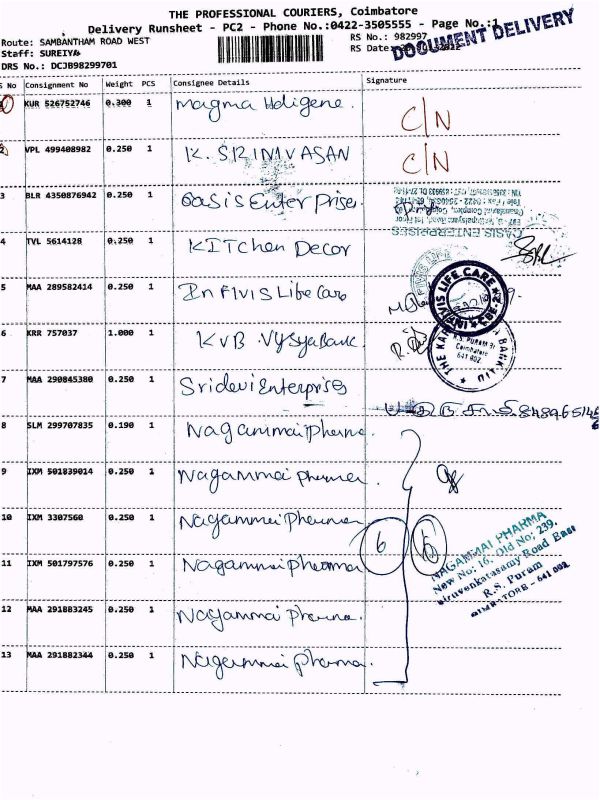 THE PROFESSIONAL COURIERS, Coimbatore
Delivery Runsheet - PC2 - Phone No.:0422-3505555 - Page No.:1
DOCUMENT DELIVERY
Route: SAMBANTHAM ROAD WEST
RS No.: 982997
Staff: SUREIYA
RS Date:
DRS No.: DCJB98299701
S No Consignment No Weight PCS Consignee Details Signature
1 KUR 526752746 0.300 1 Magma Hdigene. C/N
2 VPL 499408982 0.250 1 K. SRINIVASAN C/N
3 BLR 4350876942 0.250 1 Oasis Enter Prises
OASIS ENTERPRISES
4 TVL 5614128 0.250 1 KITchen Decor
5 MAA 289582414 0.250 1 InFIVIS Life Care
INFIVIS LIFE CARE
6 KRR 757037 1.000 1 KVB. Vysya Bank.
R.S. PURAM Br
Coimbatore
641 002
7 MAA 290845380 0.250 1 Sridevi Enterprises
8 SLM 299707835 0.190 1 Nagammai Pharma.
9 IXM 501839014 0.250 1 Nagammai Pharma
10 IXM 3307560 0.250 1 Nagammai Pharma
6 6
11 IXM 501797576 0.250 1 Nagammai Pharma
NAGAMMAI PHARMA
New No: 16, Old No: 239,
Thiruvenkatasamy Road East
R.S. Puram
COIMBATORE - 641 002
12 MAA 291883245 0.250 1 Nagammai Pharma.
13 MAA 291882344 0.250 1 Nagammai Pharma.